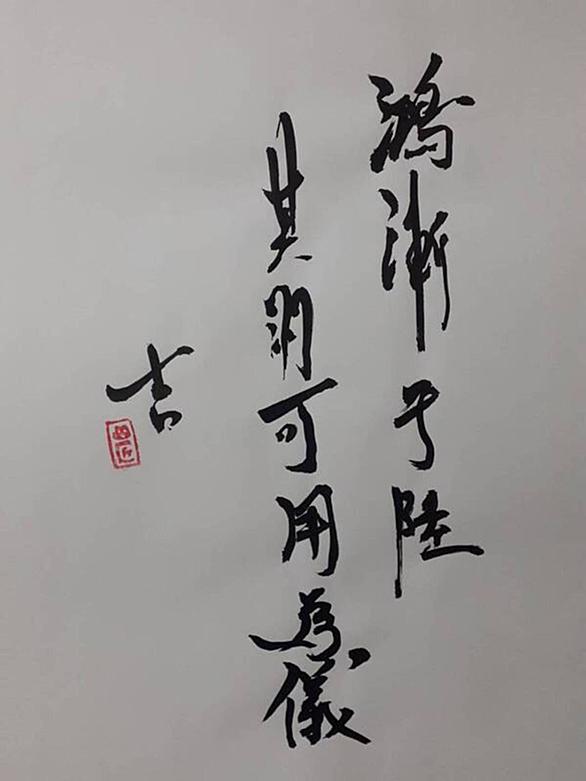 鴻漸于陸
其羽可用為儀
吉